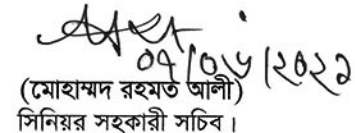 ০৭/০৬/২০২১
(মোহাম্মদ রহমত আলী)
সিনিয়র সহকারী সচিব।